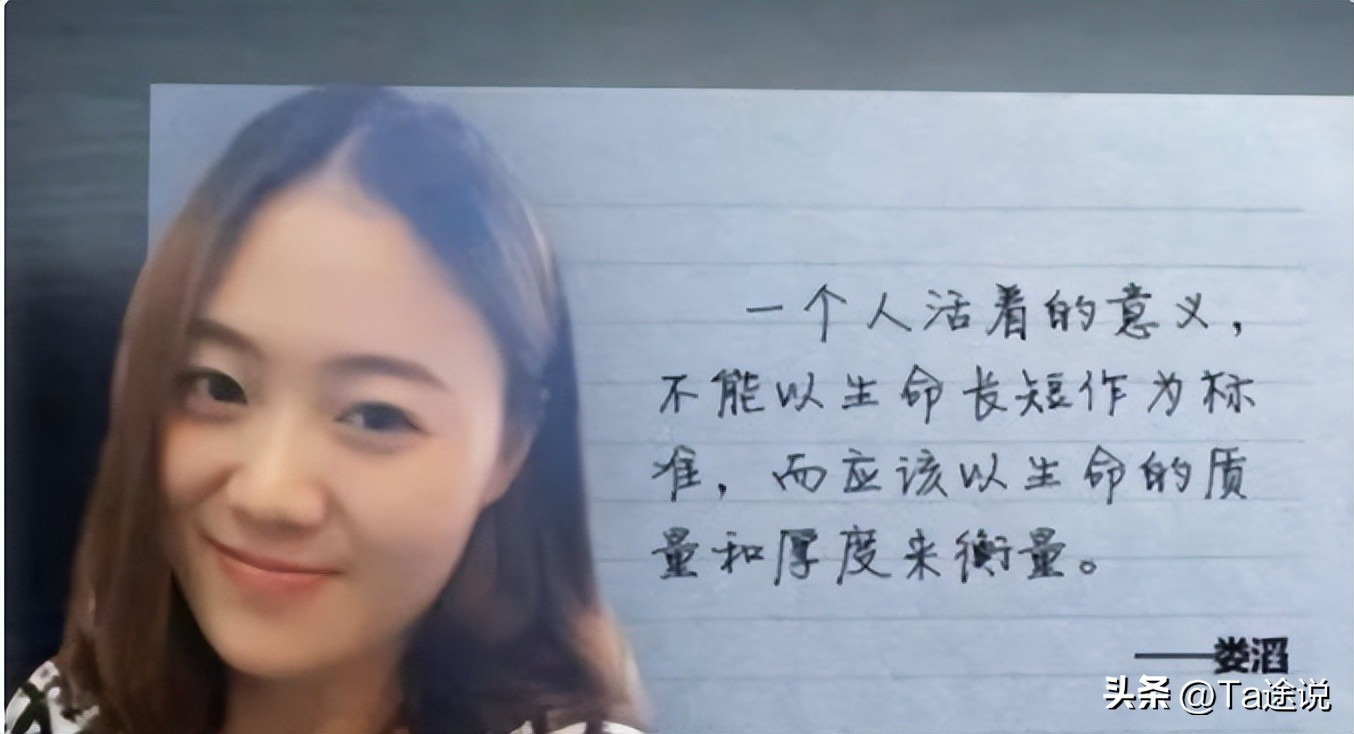 一个人活着的意义，
不能以生命长短作为标
准，而应该以生命的质
量和厚度来衡量。
——娄滔
头条 @Ta途说